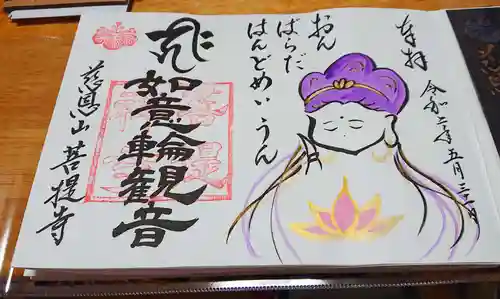 奉拝
令和二年五月三十一日
おん
ばらだ
はんどめいうん
如意輪観音
慈恩山 菩提寺